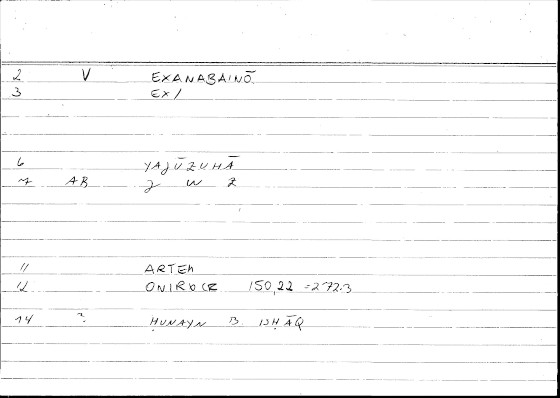 2 V EXANABAINŌ.
3 EX/
6 YAJŪZUHĀ
7 AB J W Z
11 ARTEM
12 ONIROCR 150,22 =272.3
14 ? ḤUNAYN B ISḤĀQ